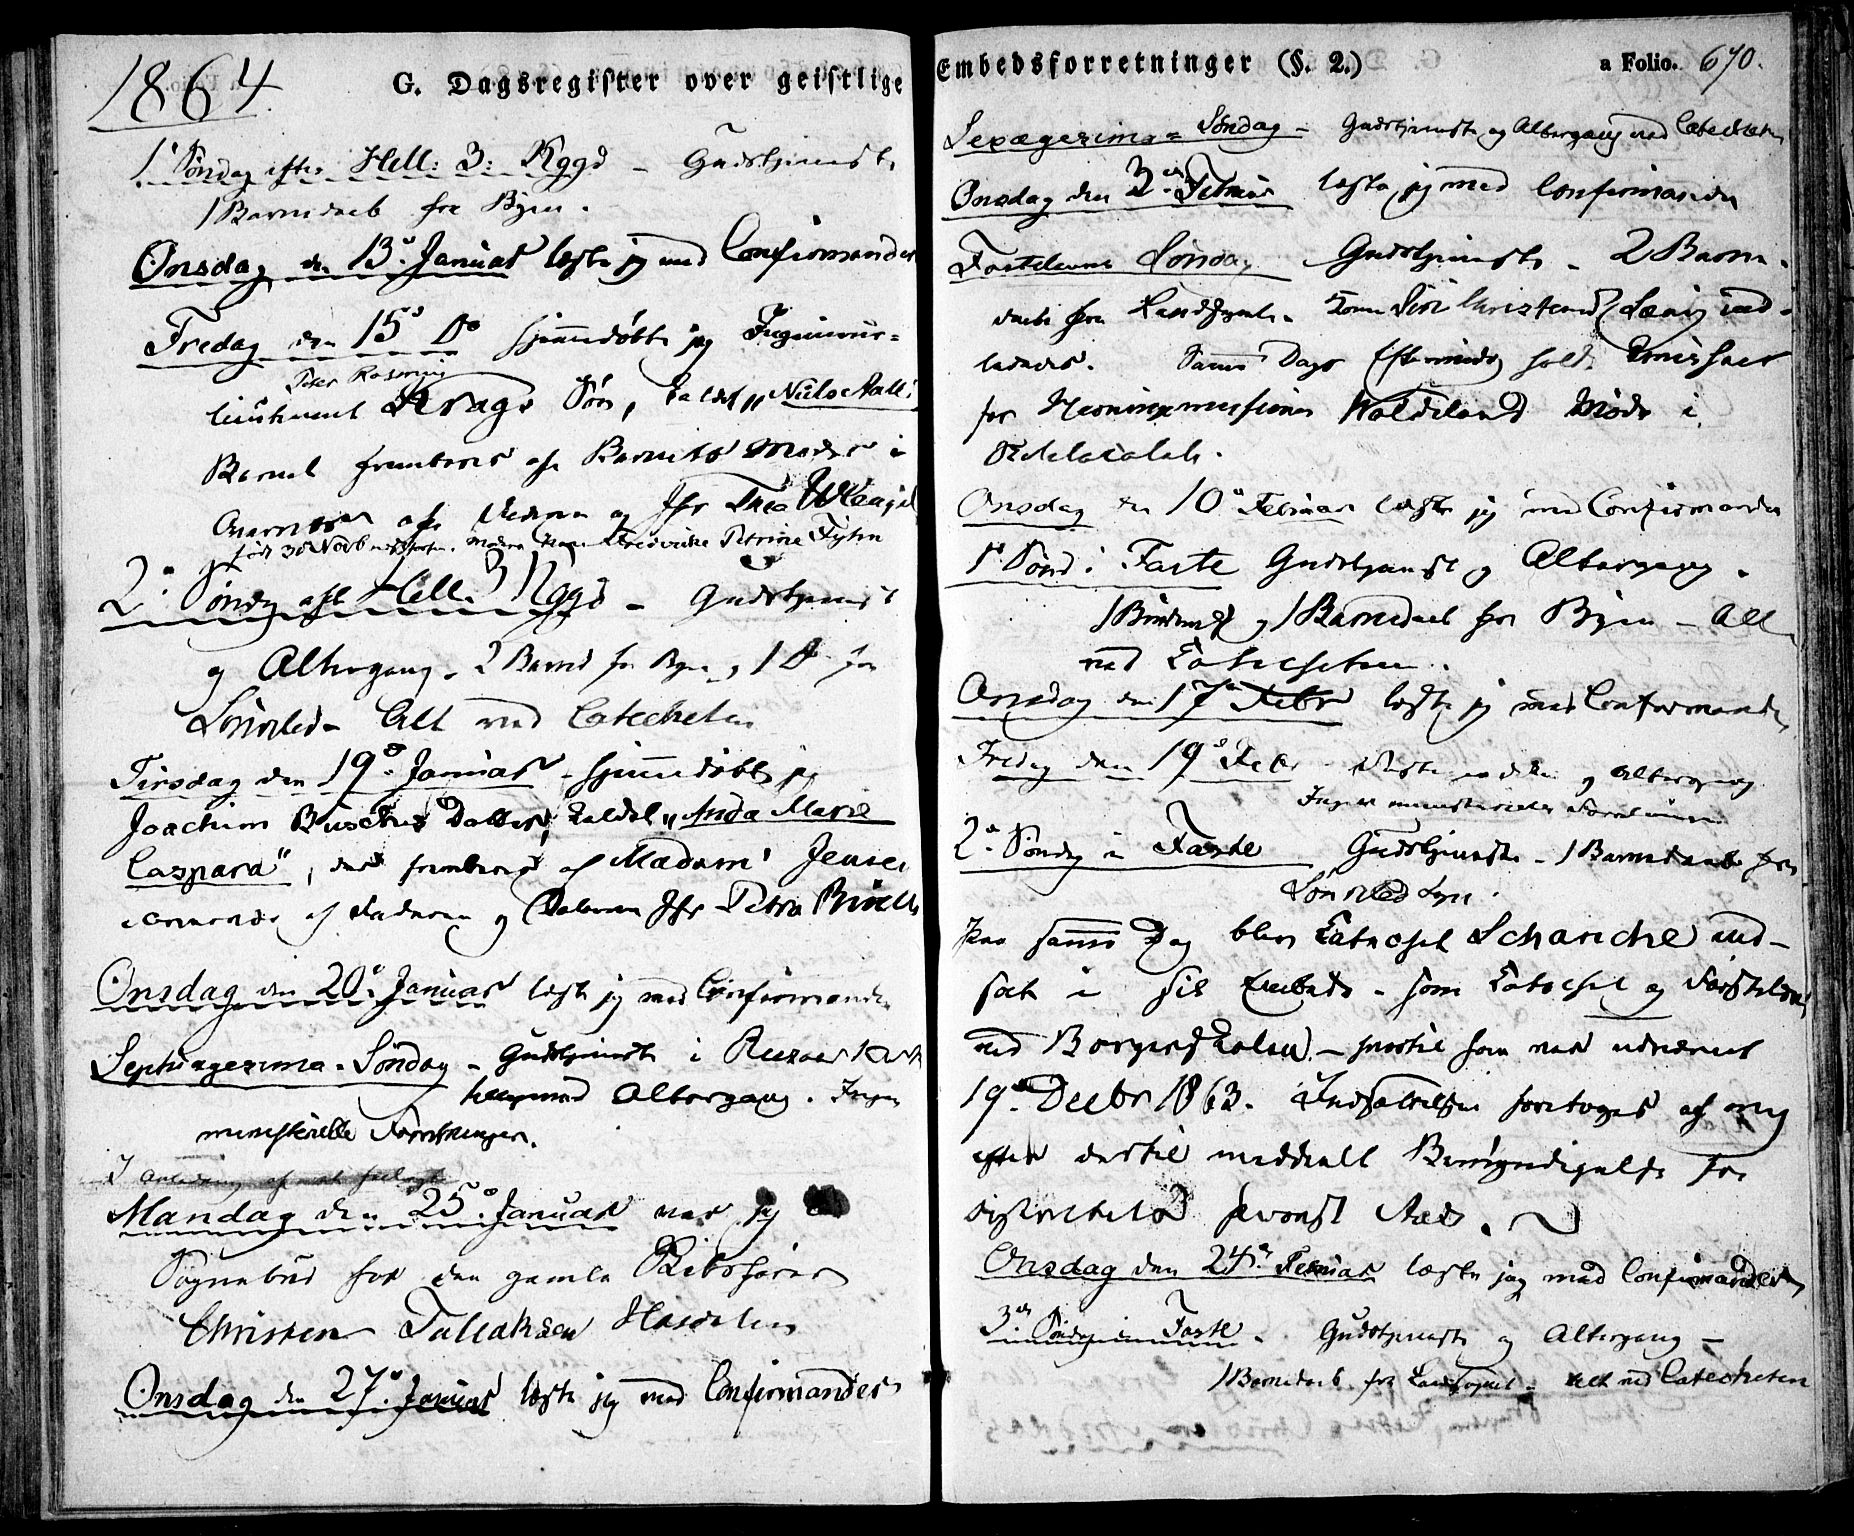 1864.
G. Dagsregister over geistlige
1ste Søndag efter Hell: 3: Kgg's – Gudstjeneste
1 Barnedaab fra Byen.
Onsdag den 13de Januar læste jeg med Confirmander
Fredag den 15de Do hjemmedøbte jeg Ingenieur=
Peter Rasmus
lieutenant Krags Søn, kaldet „Niels Aall"
Barnet frembaret af Barnets Moder i
Overvær af Faderen og Jfr Thea
født 30 Novb Moder Petrine
2den Søndag eft Hell. 3 Kggs – Gudstjeneste
og Altergang. 2 Barned fra Byen og 1 Do fra
Søndeled – Alt ved Catecheten
Tirsdag den 19de Januar – hjemmedøbte jeg
Joachim Datter, kaldet „Anda Marie
Caspara", der frembares af Madam Jensen
i Overvær af Faderen og Jfr Petra
Onsdag den 20de Januar læste jeg med Confirmander
Septuagesima – Søndag – Gudstjeneste i Kirke
Altergang. Ingen
ministerielle Forretninger.
I Anledning af
Mandag den 25de Januar var jeg
Sognebud for den gamle
Christen Tallaksen
Onsdag den 27de Januar læste jeg med Confirmander
Embedsforretninger (§. 2.)
a Folio. 670.
Sexagesima = Søndag – Gudstjeneste og Altergang ved Catecheten
Onsdag den 3de Februar læste jeg med Confirmander
Fastelavns Søndag Gudstjeneste – 2 Barne-
daab fra Landsognet. Kone Siri ind-
lededes. Samme Dags Eftermiddag holdt Emissær
for Hedningemissionen Waldeland Møde i
Onsdag den 10de Februar læste jeg med Confirmander
1ste Sønd i Faste Gudstjeneste og Altergang.
1 og 1 Barnedaab fra Byen – Alt
ved Catecheten.
Onsdag den 17de Febr læste jeg med Confirmander
Fredag den 19de Febr – og Altergang
Ingen ministerielle Forretninger
2den Søndag i Faste Gudstjeneste – 1 Barnedaab fra
Søndeled Sogn.
Paa samme Dag blev Catechet Schanche ind-
sat i sit Embede – som Catechet og Forstelærer
ved Borgerskolen – hvortil han var udnævnt
19de Decbr 1863. Indsættelsen foretoges af mig
efter dertil meddeelt Bemyndigelse fra
Høist Sted.
Onsdag den 24de Februar læste jeg med Confirmander
3die Søndag i Faste – Gudstjeneste og Altergang –
1 Barnedaab fra Landsognet – Alt ved Catecheten